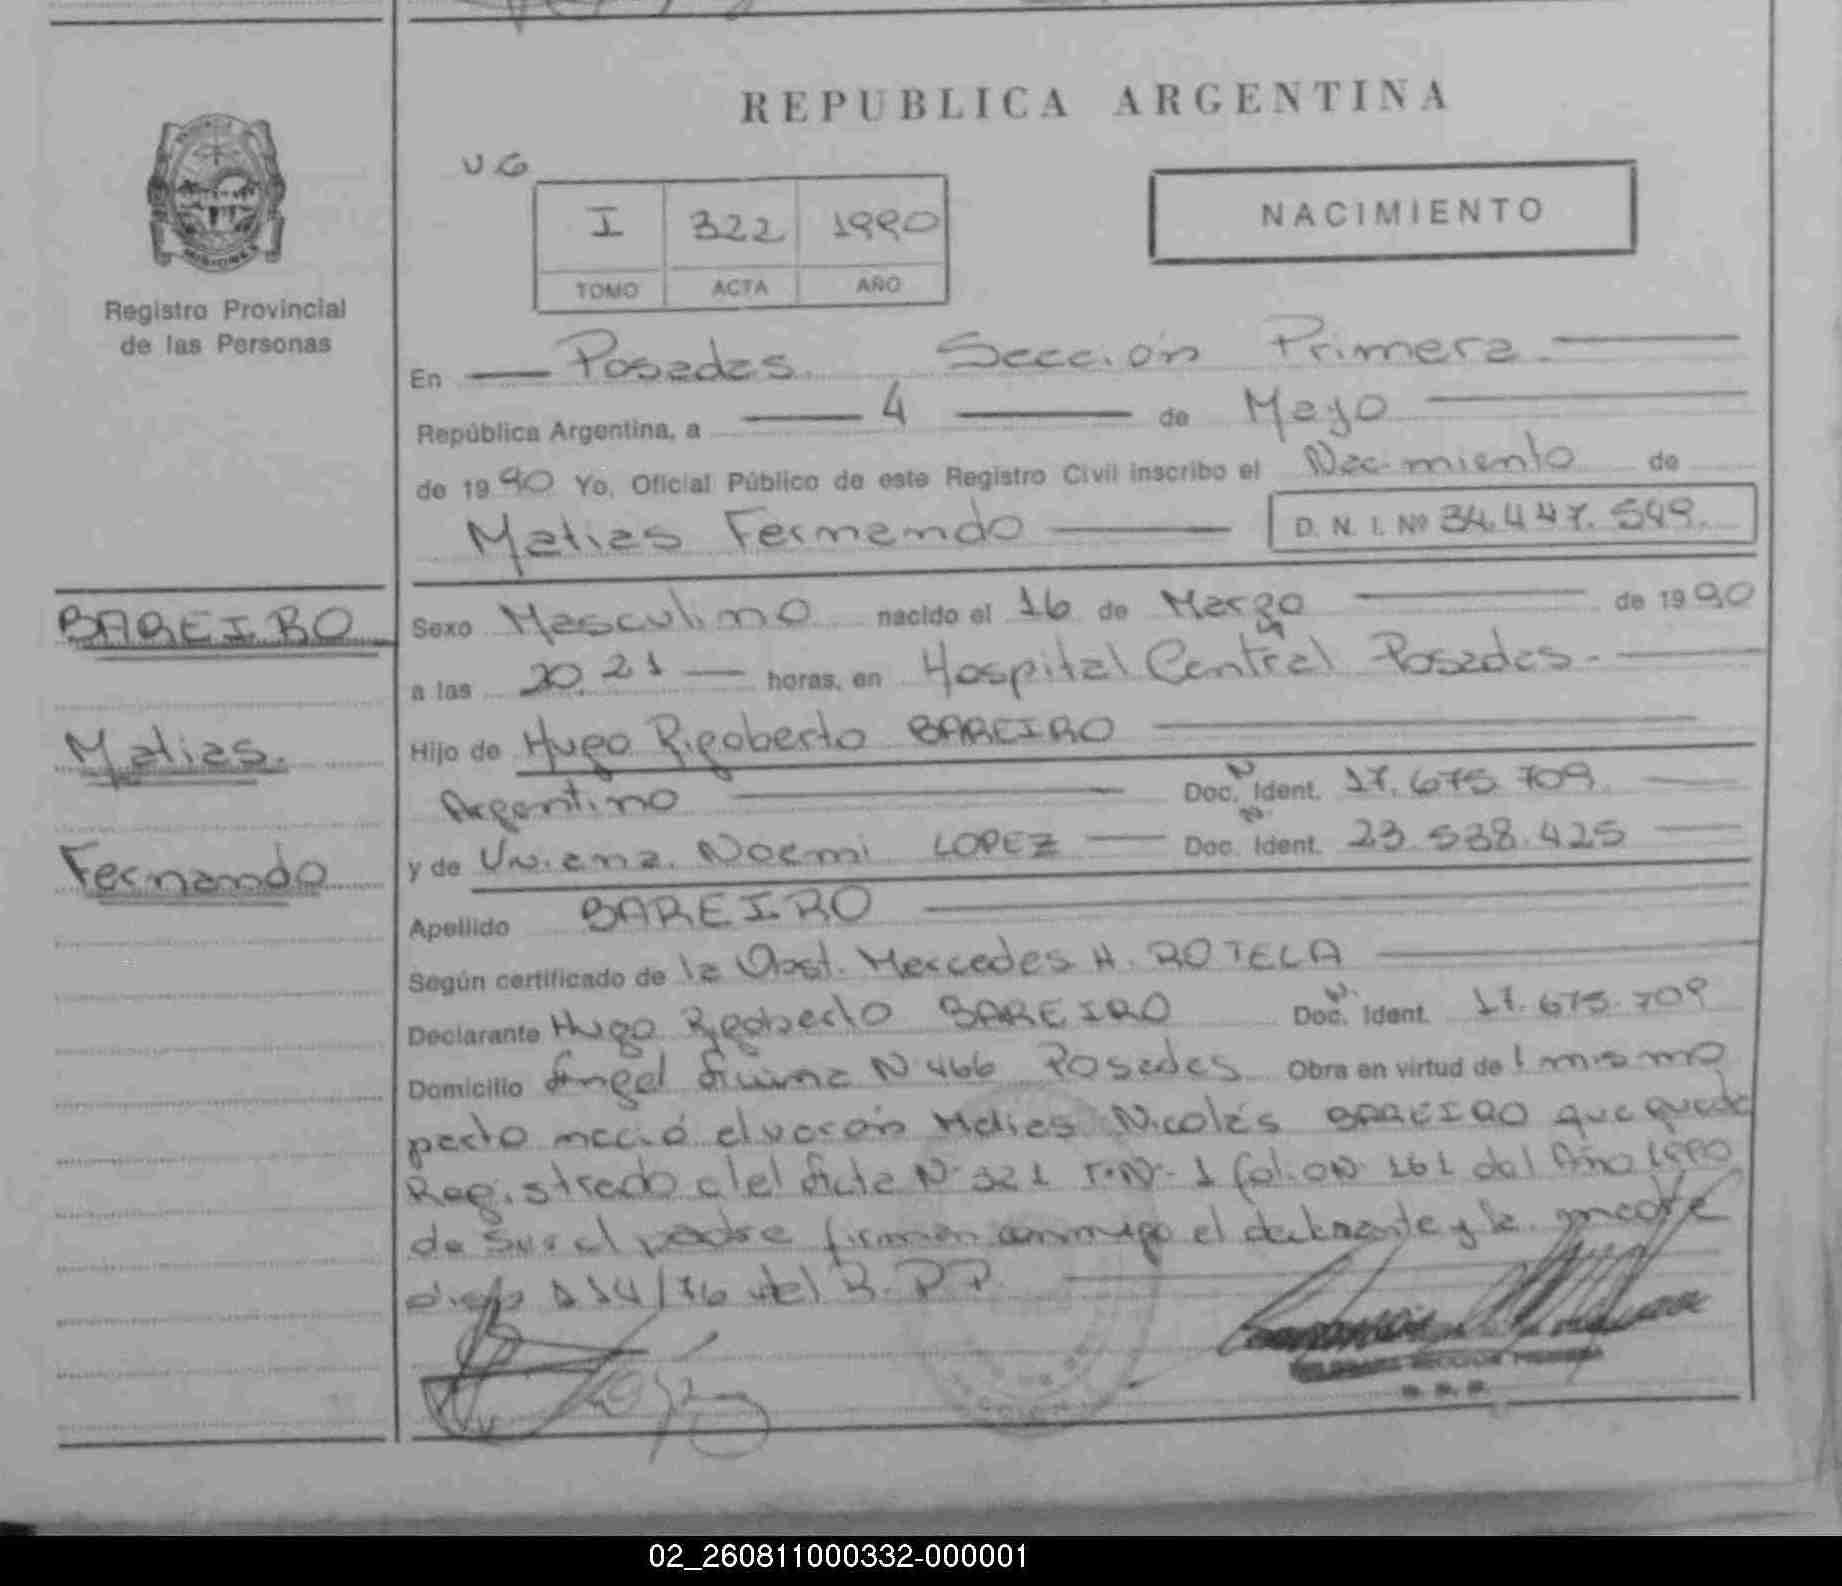 REPUBLICA ARGENTINA
UG
I 322 1990
TOMO ACTA AÑO
NACIMIENTO
Registro Provincial
de las Personas
En Posadas Sección Primera
República Argentina, a 4 de Mayo
de 1990 Yo, Oficial Público de este Registro Civil inscribo el Nacimiento de
Matias Fernando D. N. I. Nº 34.447.549.
BAREIRO
Matias.
Fernando
Sexo Masculino nacido el 16 de Marzo de 1990
a las 20.21 horas, en Hospital Central Posadas.
Hijo de Hugo Rigoberto BAREIRO
Argentino Doc. N Ident. 17.675.709
y de Viviana Noemi LOPEZ Doc. N Ident. 23.538.425
Apellido BAREIRO
Según certificado de la Obst. Mercedes H. ROTELA
Declarante Hugo Rigoberto BAREIRO Doc. N. Ident. 17.675.709
Domicilio Angel N 466 Posadas Obra en virtud de l mismo
parto nació el varón Matias Nicolás BAREIRO que queda
Registrado al Acta N 321 T.N. 1 folio N 161 del Año 1990
de ser el padre firman conmigo el declarante y la madre
114/76 del R.P.P.
02_260811000332-000001